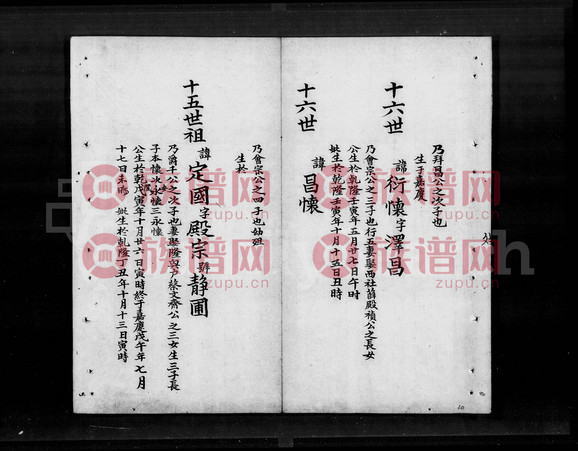 乃拜昌公之次子也
生于嘉慶
十六世
諱衍懷字澤昌
乃會宗公之三子也行五妻娶西社翁殿禎公之長女
公生於乾隆壬寅年五月廿七日午時
妣生於乾隆壬寅年十月十五日丑時
十六世
諱昌懷
乃會宗公之四子也幼殂
生於
十五世祖
諱定國字殿宗號靜圃
乃爵千公之次子也妻娶隆與户蔡文齊公之三女生三子長
子本懷次永懷三永懷
公生於乾隆戊寅年十月廿六日寅時終于嘉慶戊午年七月
十七日未時 妣生於乾隆丁丑年十月十三日寅時
族谱网
zupu.cn
10